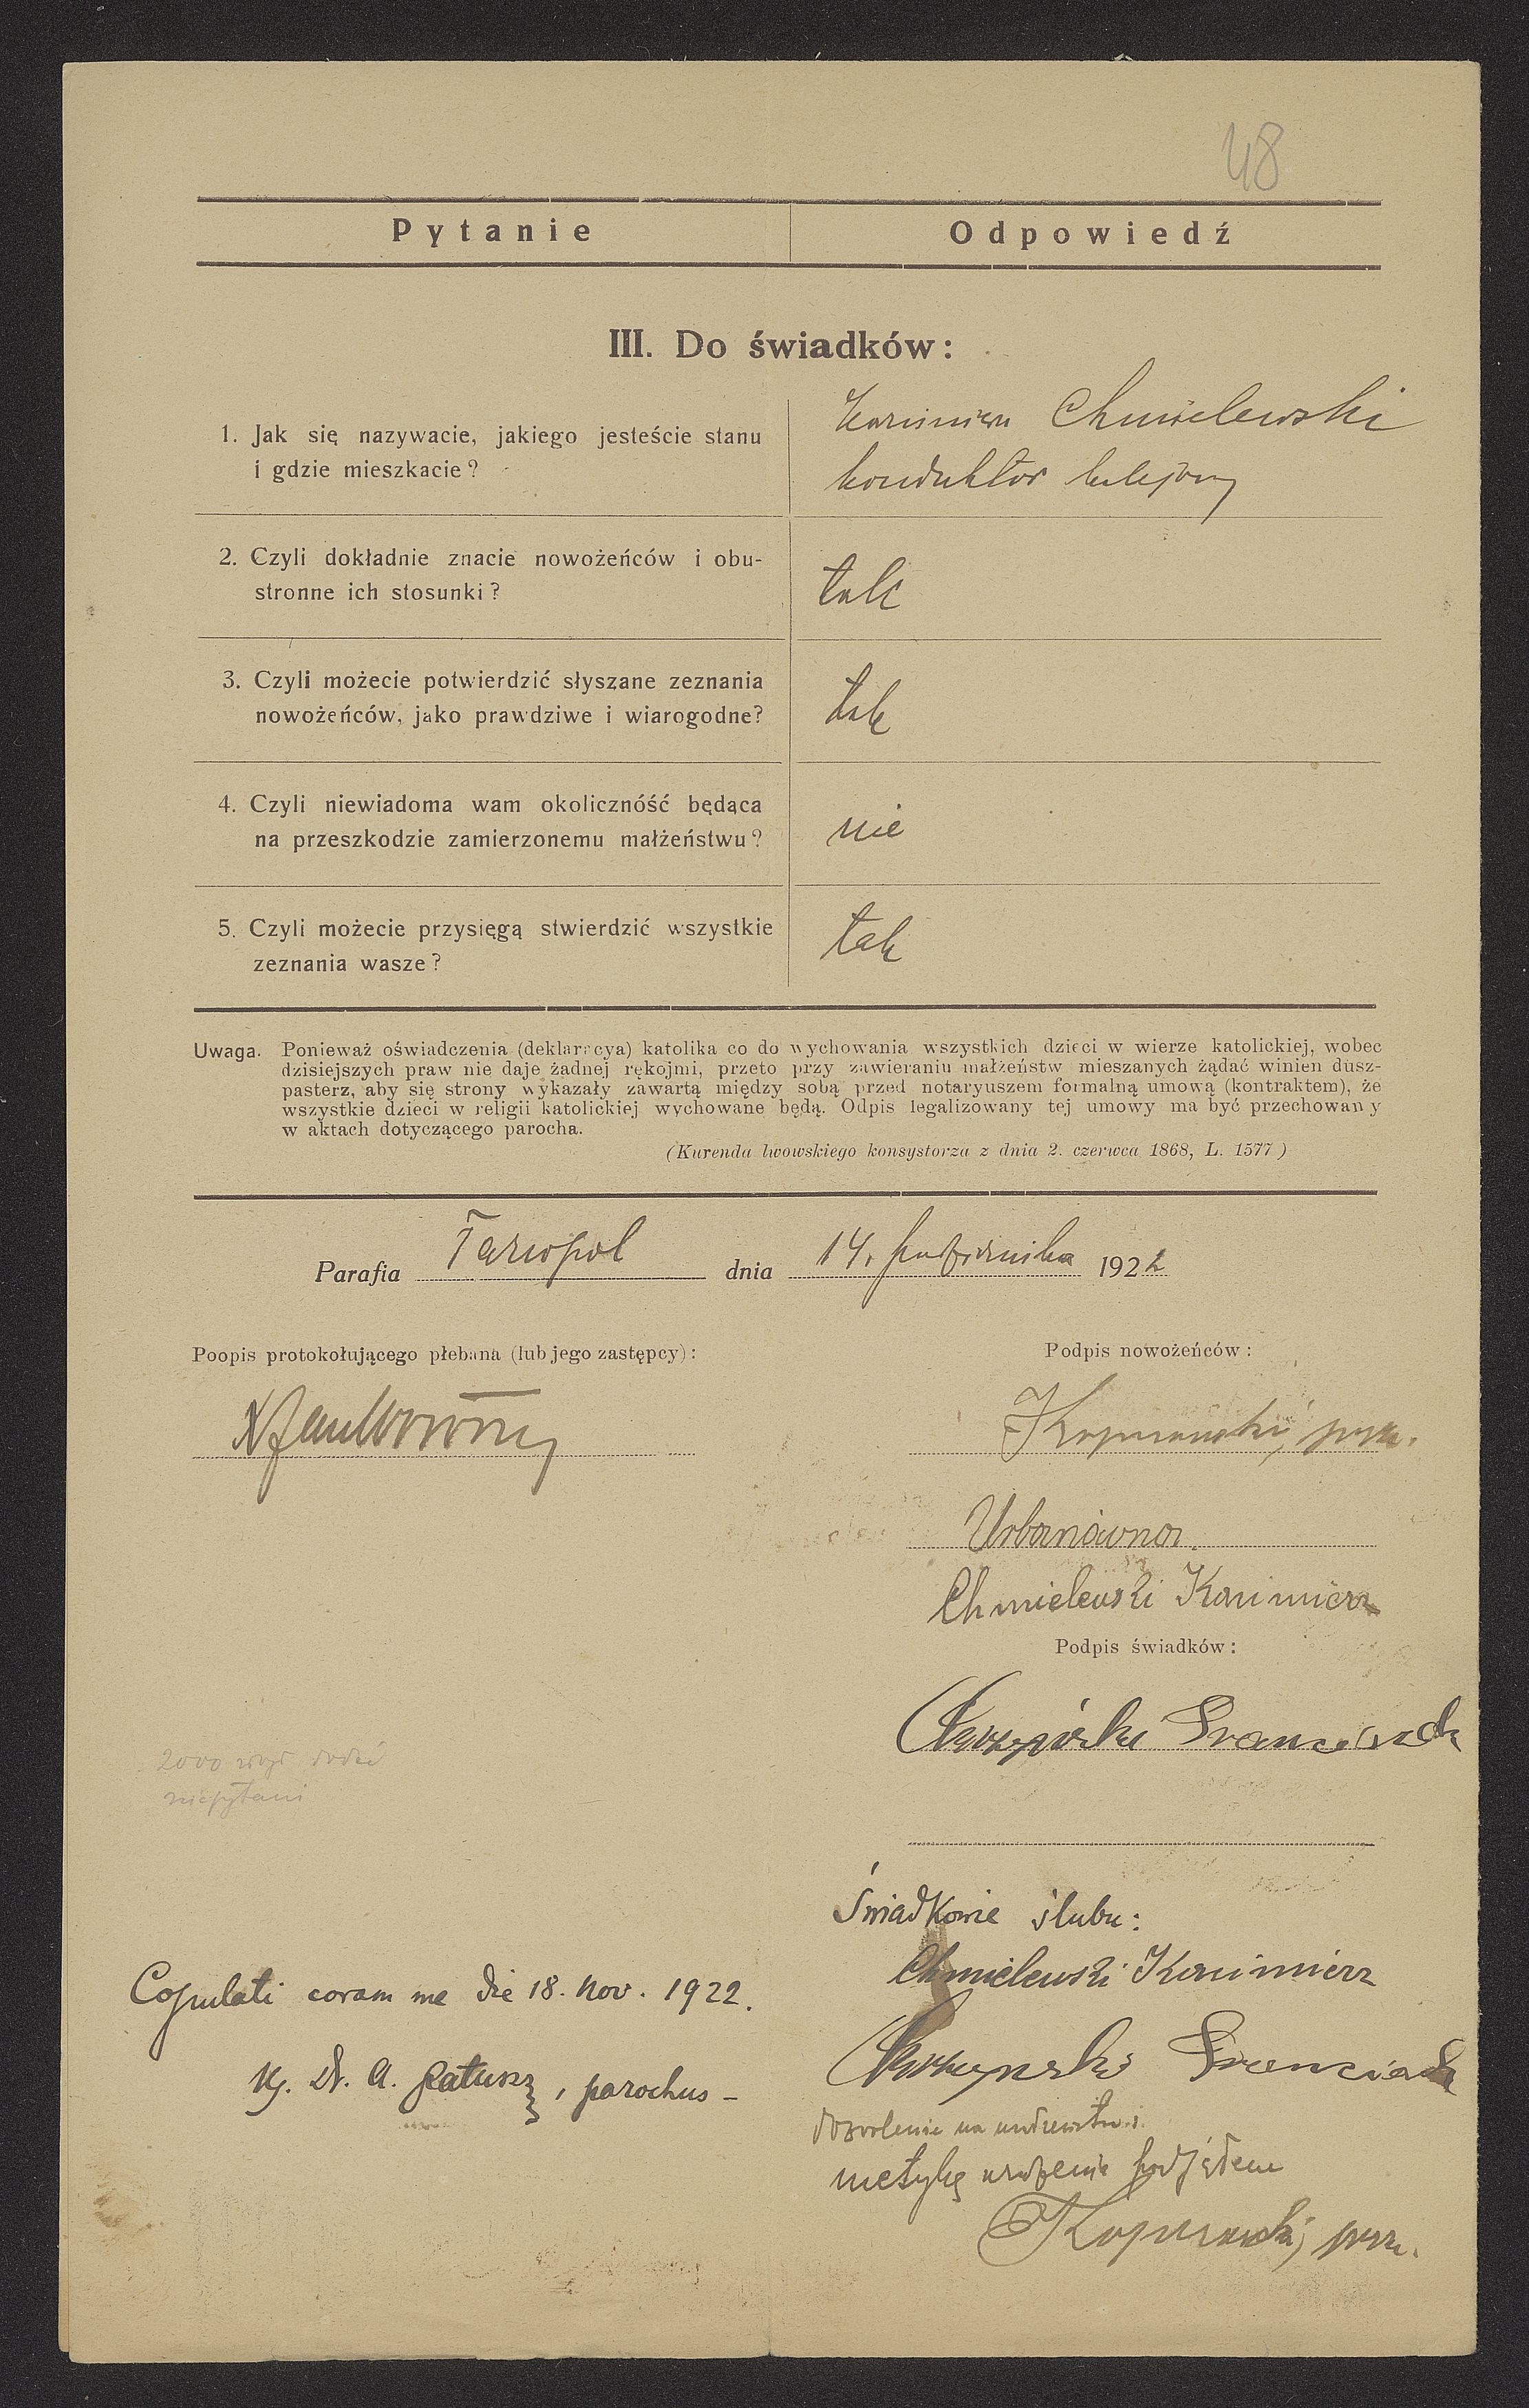 48
Pytanie Odpowiedź
III. Do świadków:
1. Jak się nazywacie, jakiego jesteście stanu
i gdzie mieszkacie?
Kazimierz Chmielewski
konduktor kolejowy
2. Czyli dokładnie znacie nowożeńców i obu-
stronne ich stosunki?
tak
3. Czyli możecie potwierdzić słyszane zeznania
nowożeńców, jako prawdziwe i wiarogodne?
tak
4. Czyli niewiadoma wam okoliczność będąca
na przeszkodzie zamierzonemu małżeństwu?
nie
5. Czyli możecie przysięgą stwierdzić wszystkie
zeznania wasze?
tak
Uwaga. Ponieważ oświadczenia (deklaracya) katolika co do wychowania wszystkich dzieci w wierze katolickiej, wobec
dzisiejszych praw nie daje żadnej rękojmi, przeto przy zawieraniu małżeństw mieszanych żądać winien dusz-
pasterz, aby się strony wykazały zawartą między sobą przed notaryuszem formalną umową (kontraktem), że
wszystkie dzieci w religii katolickiej wychowane będą. Odpis legalizowany tej umowy ma być przechowany
w aktach dotyczącego parocha.
(Kurenda lwowskiego konsystorza z dnia 2. czerwca 1868, L. 1577)
Parafia Tarnopol dnia 14. października 1922
Poopis protokołującego plebana (lub jego zastępcy):
Podpis nowożeńców:
Urbanówna.
Chmielewski Kazimierz
Podpis świadków:
Franciszek
2000
Świadkowie ślubu:
Chmielewski Kazimierz
Copulati coram me die 18. Nov. 1922.
Franciszek
X. Dr. A. Ratusz, parochus –
dozwolenie na
metykę urodzenia podjąłem